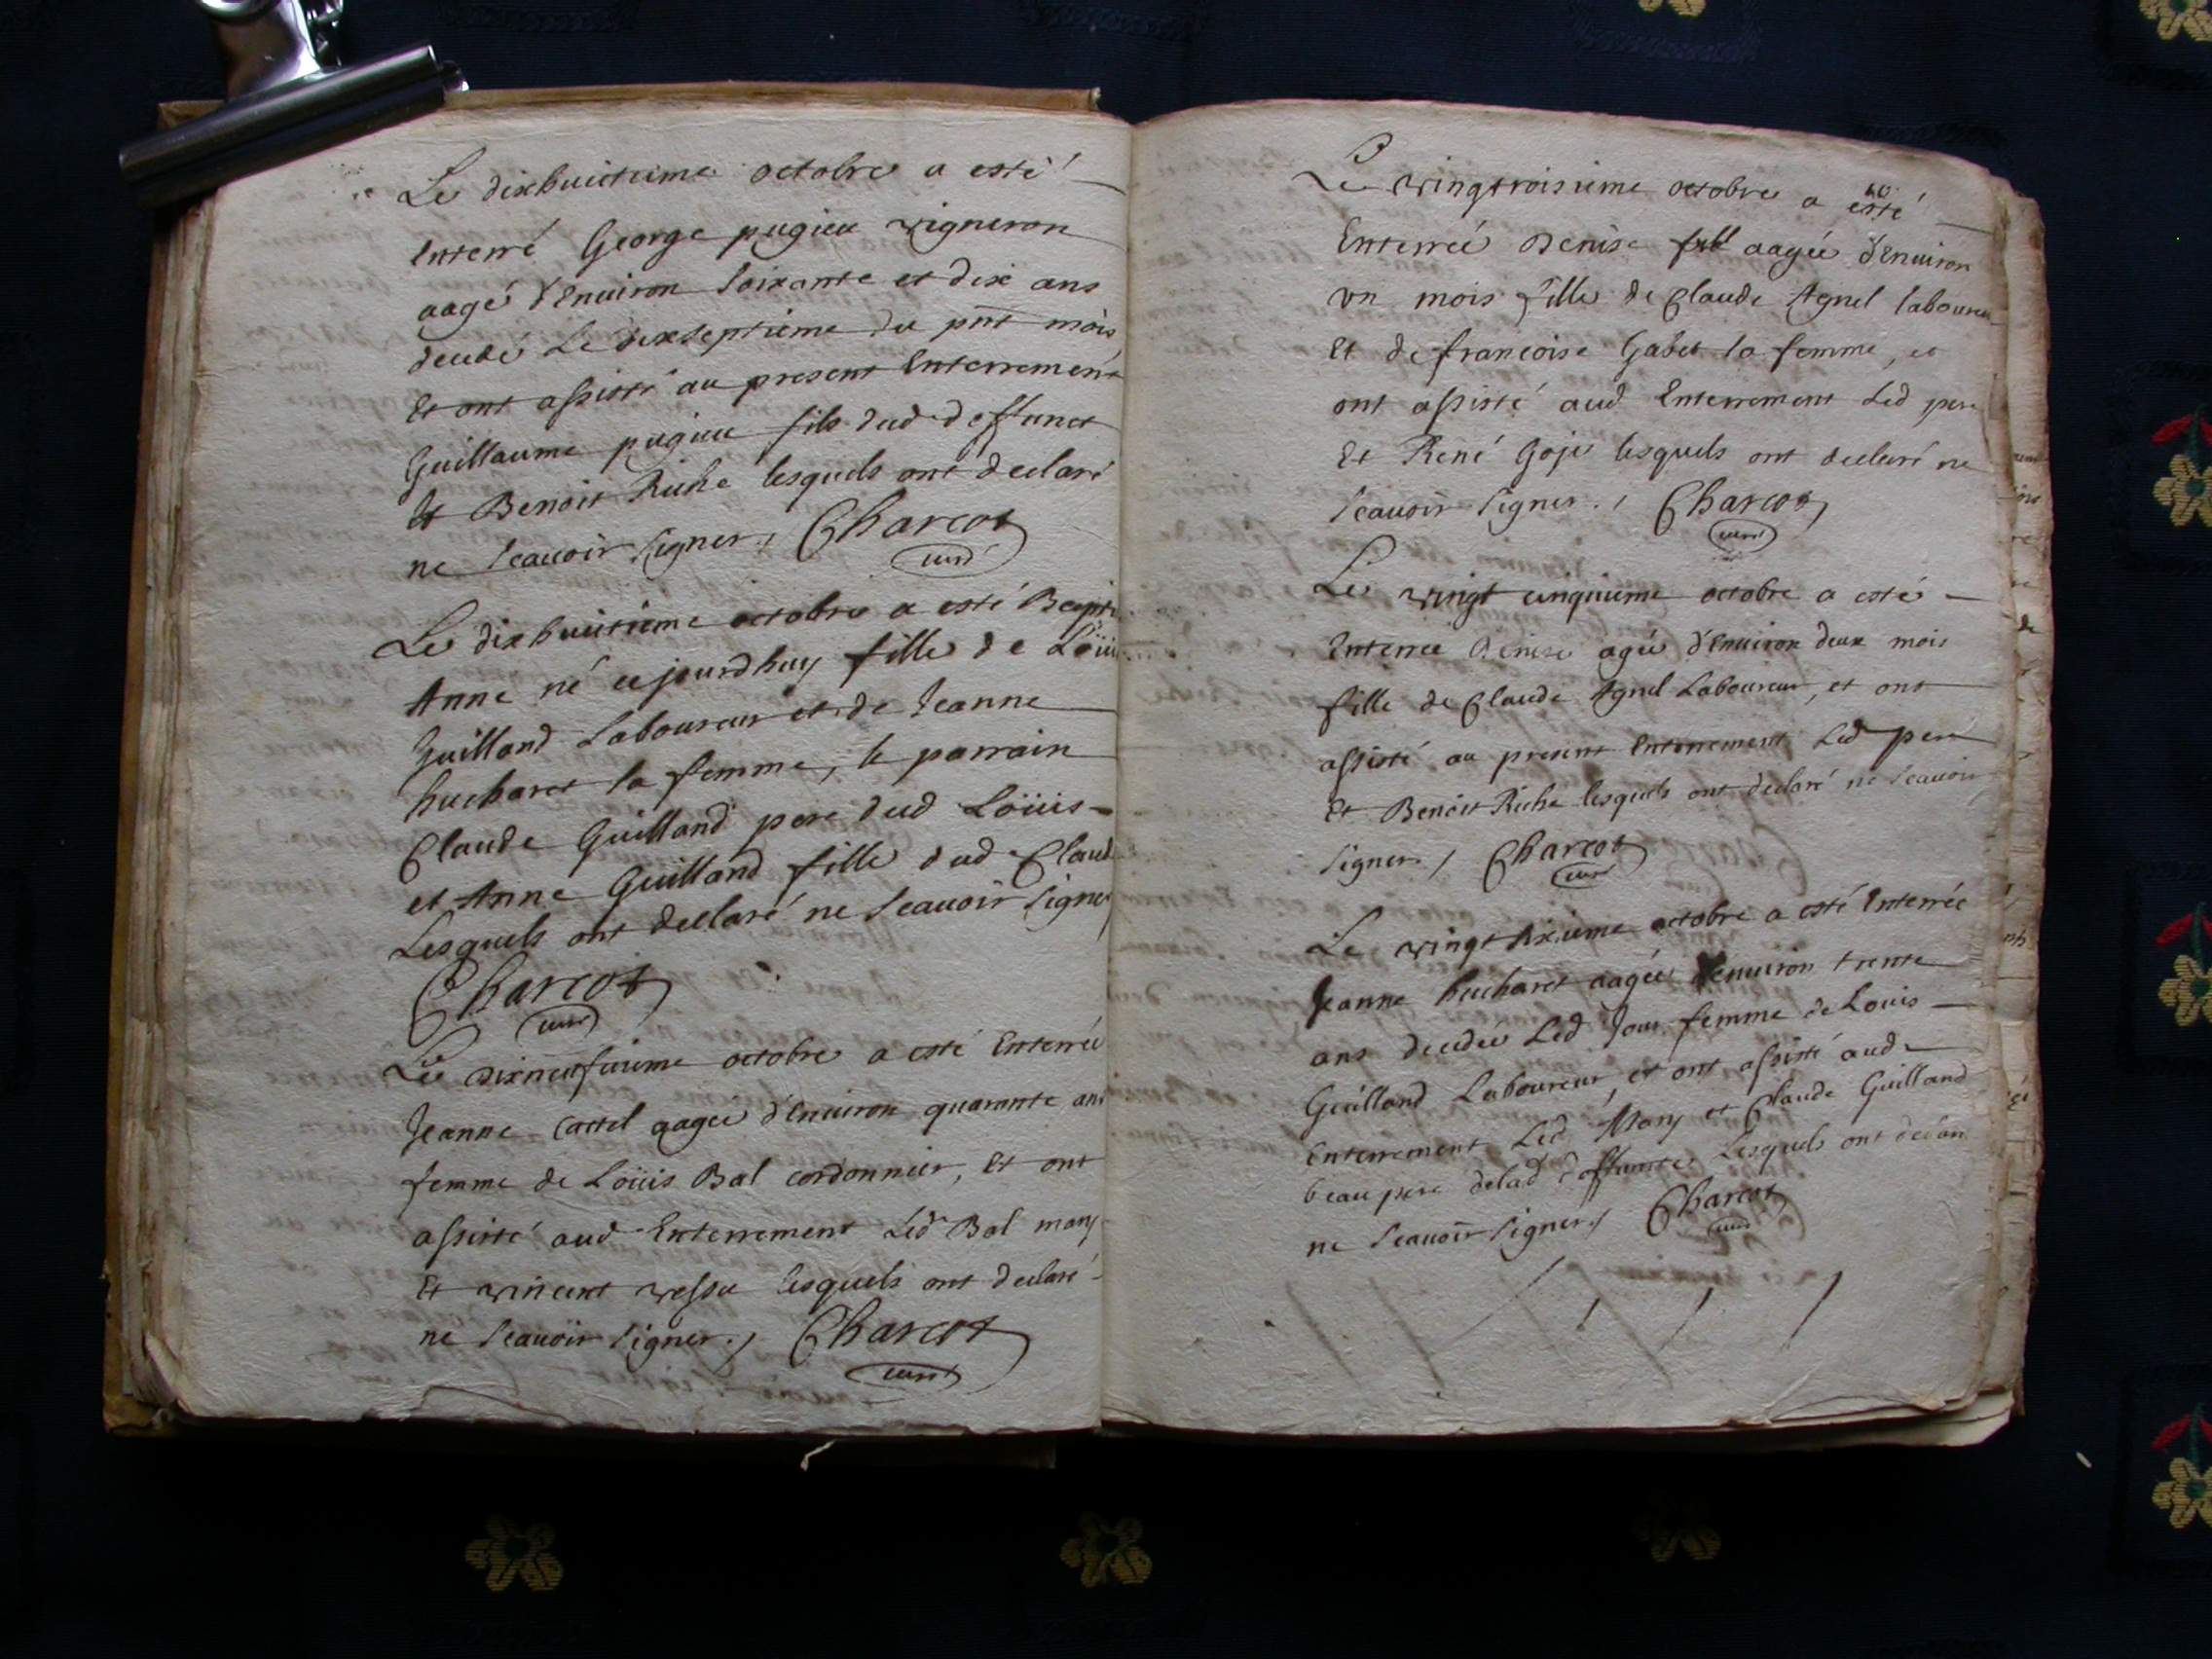 Le dixhuictieme octobre a esté
Enterré George pugieu vigneron
aagé d'Enuiron soixante et dix ans
decedé Le dixseptieme du pnt mois
Et ont assisté au present Enterrement
Guillaume pugieu fils dud deffunct
Et Benoit Riche lesquels ont declaré
ne scauoir signer / Charcot
curé
Le dixhuictieme octobre a esté Bapti
Anne né cejourdhuy fille de Loüis
Guilland Laboureur et de Jeanne
hucharet sa femme, le parrain
Claude Guilland pere dud Loüis
et Anne Guilland fille dud Claud
Lesquels ont declaré ne scauoir signer
Charcot
curé
Le dixneufuieme octobre a esté Enterrée
Jeanne Cattel aagee d'Enuiron quarante ans
femme de Loüis Bal cordonnier, Et ont
assisté aud Enterrement Led Bal mary
Et vincent vessu lesquels ont declaré
ne scauoir signer / Charcot
curé
Le vingtroisieme octobre a esté
Enterreé Denise aagée d'Enuiron
vn mois fille de Claude Agnel laboureur
Et de francoise Gabet sa femme, et
ont assisté aud Enterrement Led pere
Et René Goje lesquels ont declaré ne
scauoir signer / Charcot
curé
Le vingt cinquieme octobre a esté
Enterree Denise agée d'Enuiron deux mois
fille de Claude Agnel Laboureur, et ont
assisté au present Enterrement Led pere
Et Benoit Riche lesquels ont declaré ne scauoir
signer / Charcot
curé
Le vingt sixieme octobre a esté Enterrée
Jeanne hucharet aagée d'enuiron trente
ans decedée Led Jour femme de Louis
Guilland Laboureur, et ont assisté aud
Enterrement Led Mary et Claude Guilland
beau pere delad deffuncte Lesquels ont declaré
ne scauoir signer / Charcot
curé